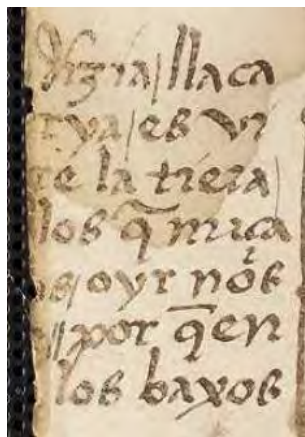 dezia / llaca
tya / es vi
de la tiera
los q̄ mica
os / oyr nōs
// por q̄ en
los baxos